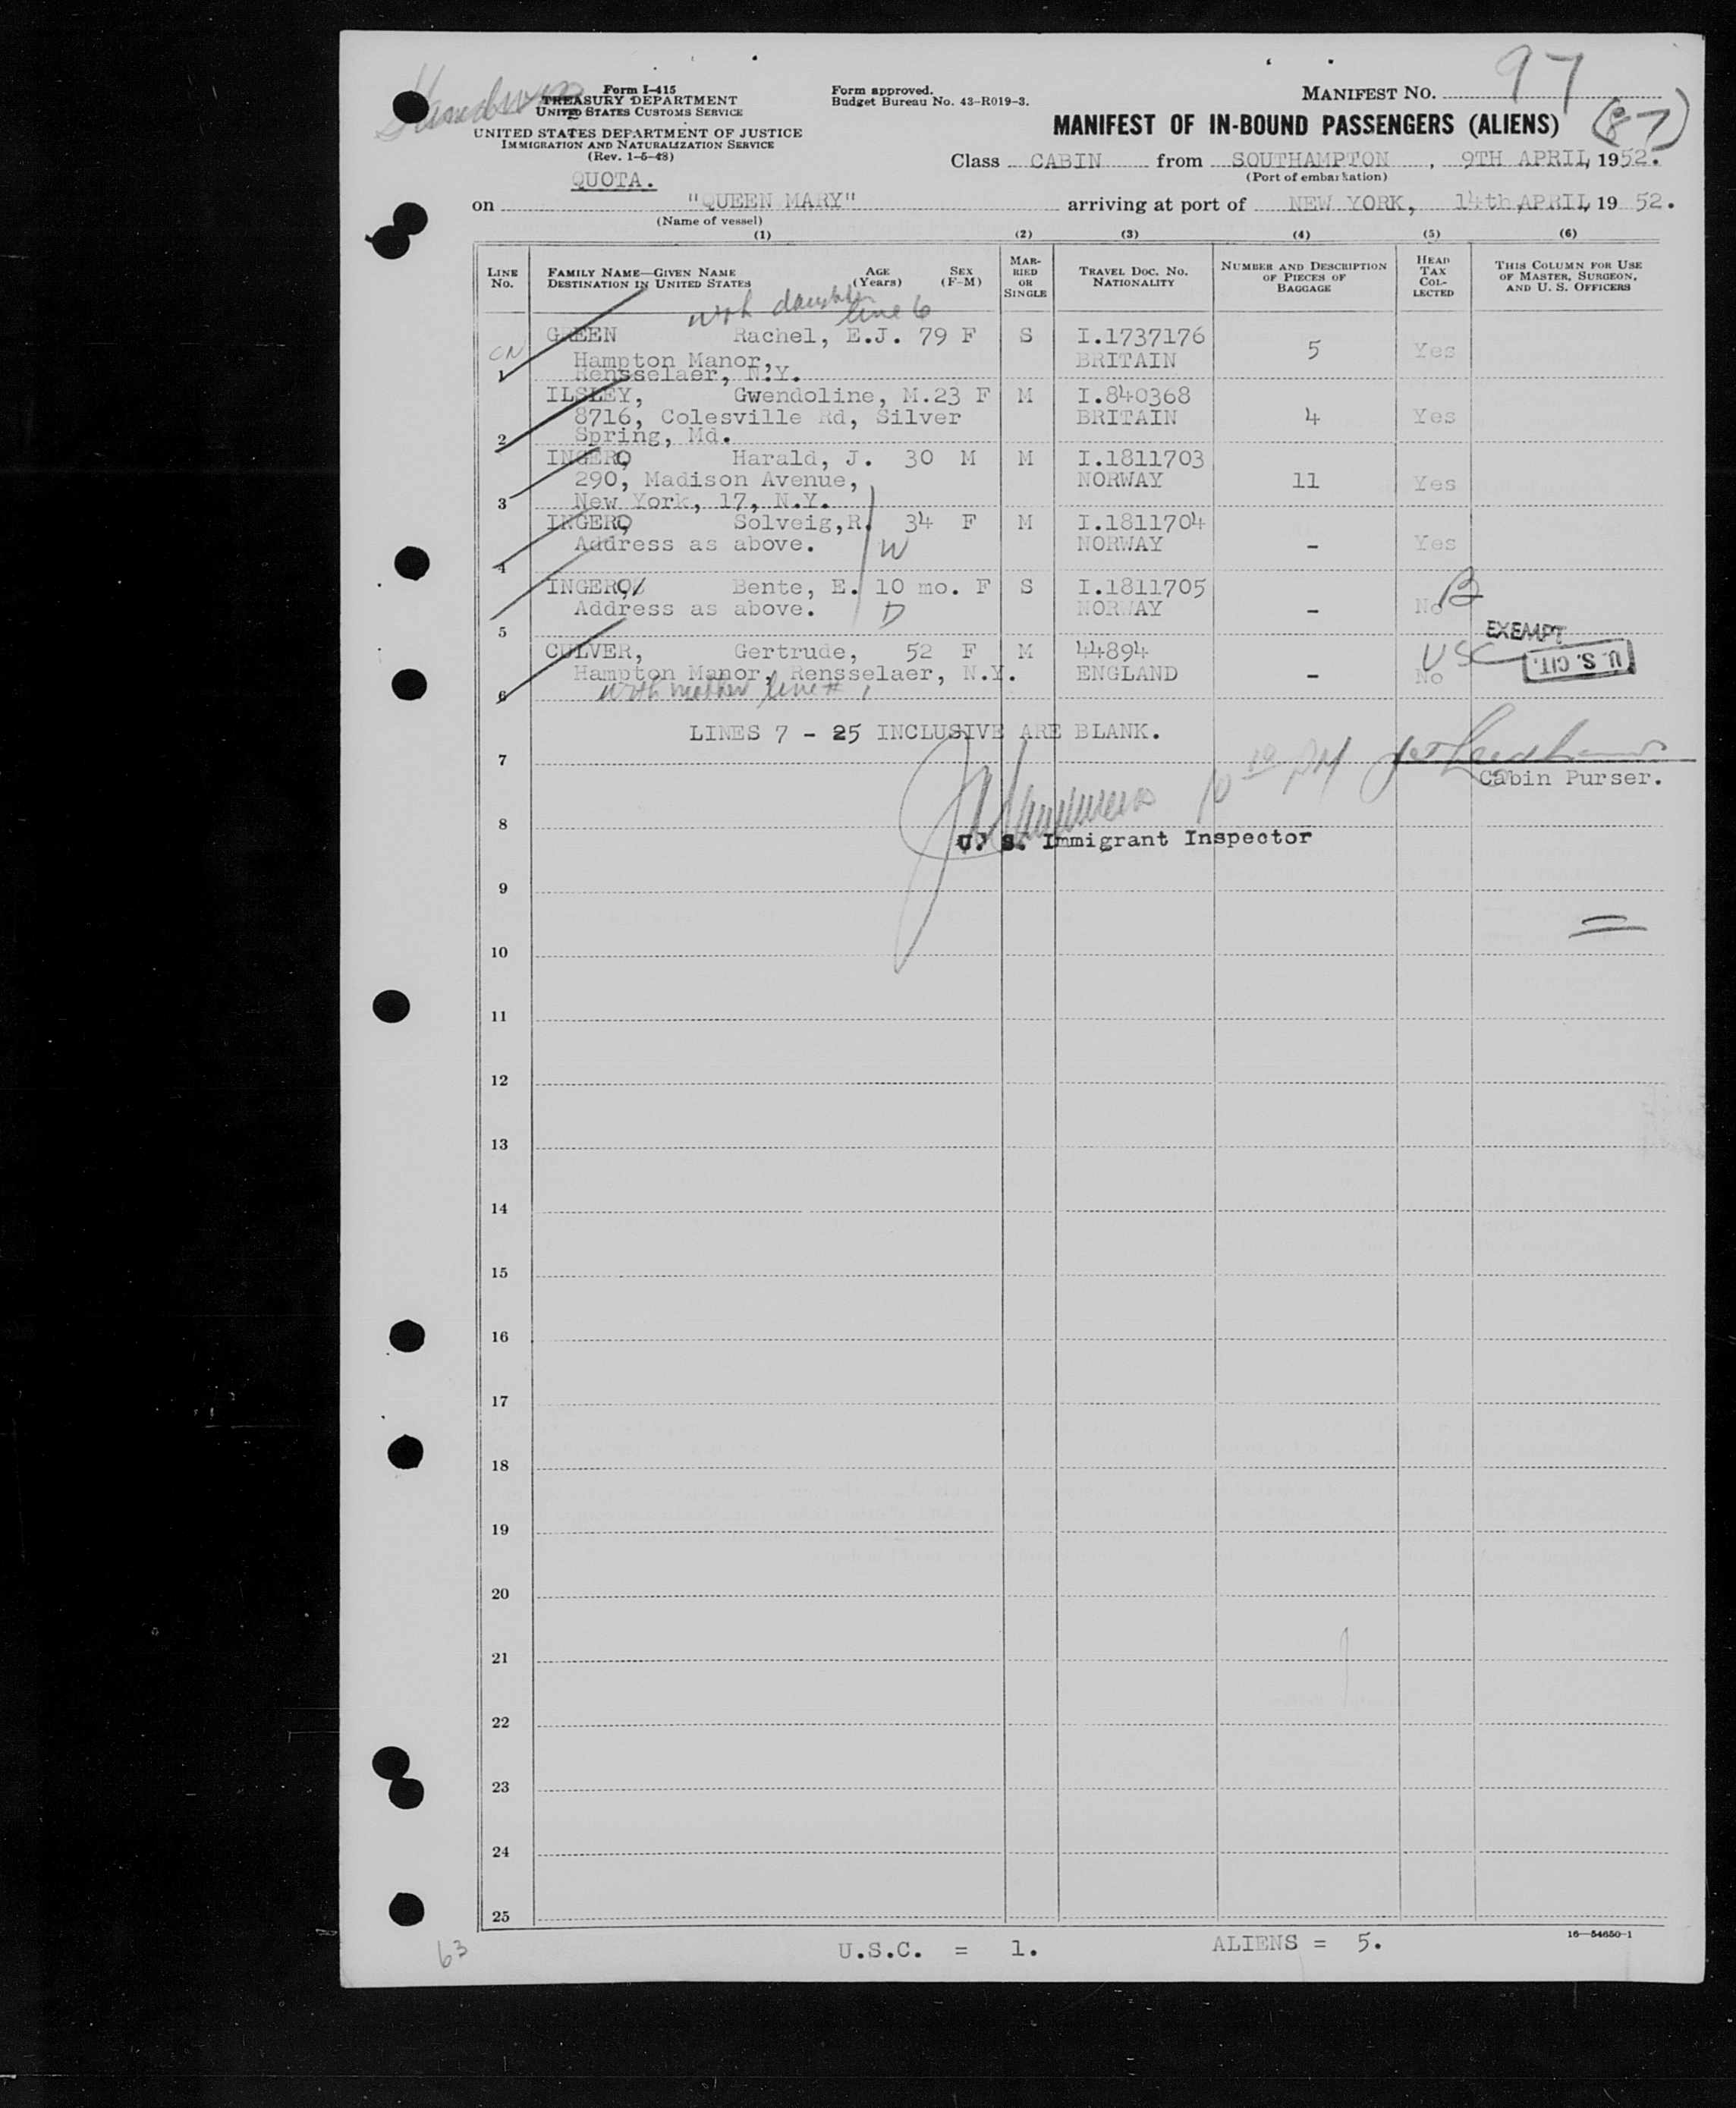 Form I-415
TREASURY DEPARTMENT
UNITED STATES CUSTOMS SERVICE
UNITED STATES DEPARTMENT OF JUSTICE
IMMIGRATION AND NATURALIZATION SERVICE
(Rev. 1-5-48)
QUOTA.
Form approved.
Budget Bureau No. 43-R019-3.
MANIFEST NO. 97
MANIFEST OF IN-BOUND PASSENGERS (ALIENS) (87)
Class CABIN from SOUTHAMPTON, 9TH APRIL, 1952.
(Port of embarkation)
on "QUEEN MARY" arriving at port of NEW YORK, 14th APRIL, 19 52.
(Name of vessel)
(1) (2) (3) (4) (5) (6)
LINE NO.
FAMILY NAME—GIVEN NAME
DESTINATION IN UNITED STATES
AGE (Years)
SEX (F-M)
MARRIED OR SINGLE
TRAVEL DOC. NO. NATIONALITY
NUMBER AND DESCRIPTION OF PIECES OF BAGGAGE
HEAD TAX COLLECTED
THIS COLUMN FOR USE OF MASTER, SURGEON, AND U. S. OFFICERS
with daughter
line 6
GREEN Rachel, E.J. 79 F S I.1737176
CN Hampton Manor, BRITAIN 5 Yes
1 Rensselaer, N.Y.
ILSLEY, Gwendoline, M. 23 F M I.840368
8716, Colesville Rd, Silver BRITAIN 4 Yes
2 Spring, Md.
INGERO, Harald, J. 30 M M I.1811703
290, Madison Avenue, NORWAY 11 Yes
3 New York, 17, N.Y.
INGERO, Solveig, R. 34 F M I.1811704
Address as above. W NORWAY - Yes
4
INGERO, Bente, E. 10 mo. F S I.1811705
Address as above. D NORWAY - No B
5
EXEMPT
CULVER, Gertrude, 52 F M 44894 USC U. S. CIT.
Hampton Manor, Rensselaer, N.Y. ENGLAND - No
6 with mother line # 1
LINES 7 - 25 INCLUSIVE ARE BLANK.
7
Cabin Purser.
10 10 PM
8
U. S. Immigrant Inspector
9
10
11
12
13
14
15
16
17
18
19
20
21
22
23
24
25
16—54650-1
63 U.S.C. = 1. ALIENS = 5.